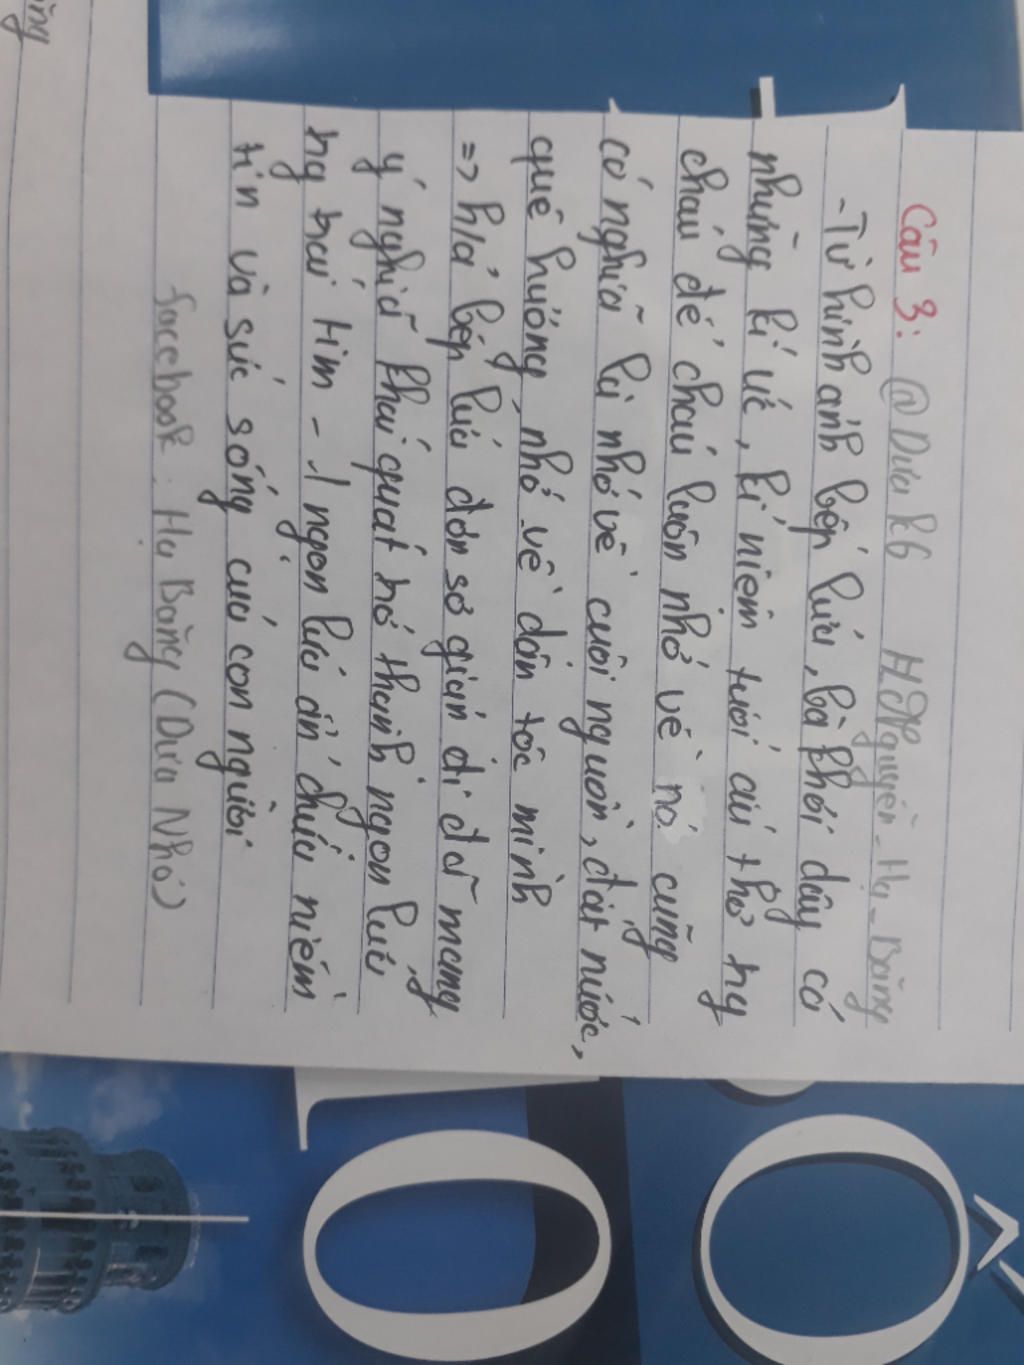 Câu 3: @Dưa k6 Nguyễn_Hạ_Băng
- Từ hình ảnh bếp lửa, bà khơi dậy cả
những kí ức, kỉ niệm tuổi ấu thơ ng
cháu để cháu luôn nhớ về nó cũng
có nghĩa là nhớ về cuội nguồn, đất nước,
quê hương, nhớ về dân tộc mình
=> h/ả bếp lửa đơn sơ giản dị đã mang
ý nghĩa khái quát hoá thành ngọn lửa
ng trái tim - 1 ngọn lửa ẩn chứa niềm
tin và sức sống của con người
facebook: Hạ Băng (Dưa Nhỏ)